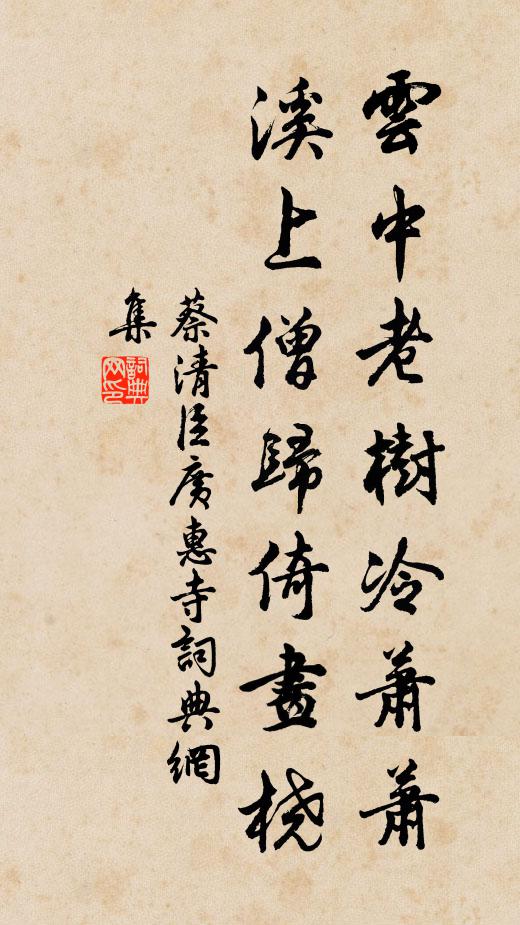 雲中老樹冷蕭蕭
溪上僧歸倚畫橈
蔡清臣廣惠寺詞典網
集
詞典
网印